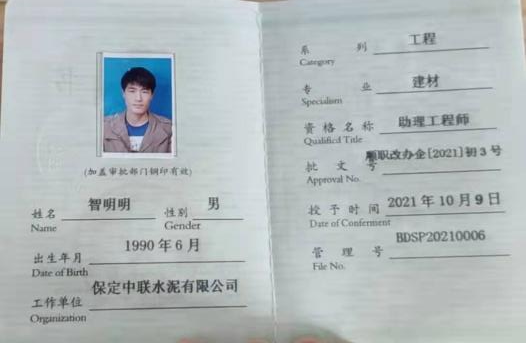 (加盖审批部门钢印有效)
姓名 智明明 性别 男
Name Gender
出生年月 1990年6月
Date of Birth
工作单位 保定中联水泥有限公司
Organization
系列 工程
Category
专业 建材
Specialism
资格名称 助理工程师
Qualified Title
批文号 职改办企[2021]初3号
Approval No.
授予时间 2021年10月9日
Date of Conferment
管理号 BDSP20210006
File No.